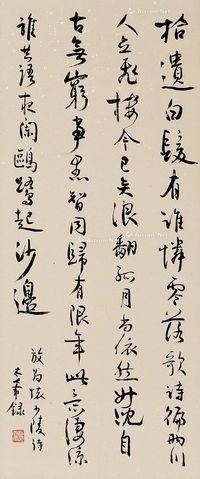 拾遺白髮有誰憐零落歌詩徧兩川
人立飛樓今已矣浪翻孤月尚依然升沈自
古無窮事愚智同歸有限年此意淒涼
誰共語夜闌鷗鷺起沙邊
放翁懷少陵詩
錄